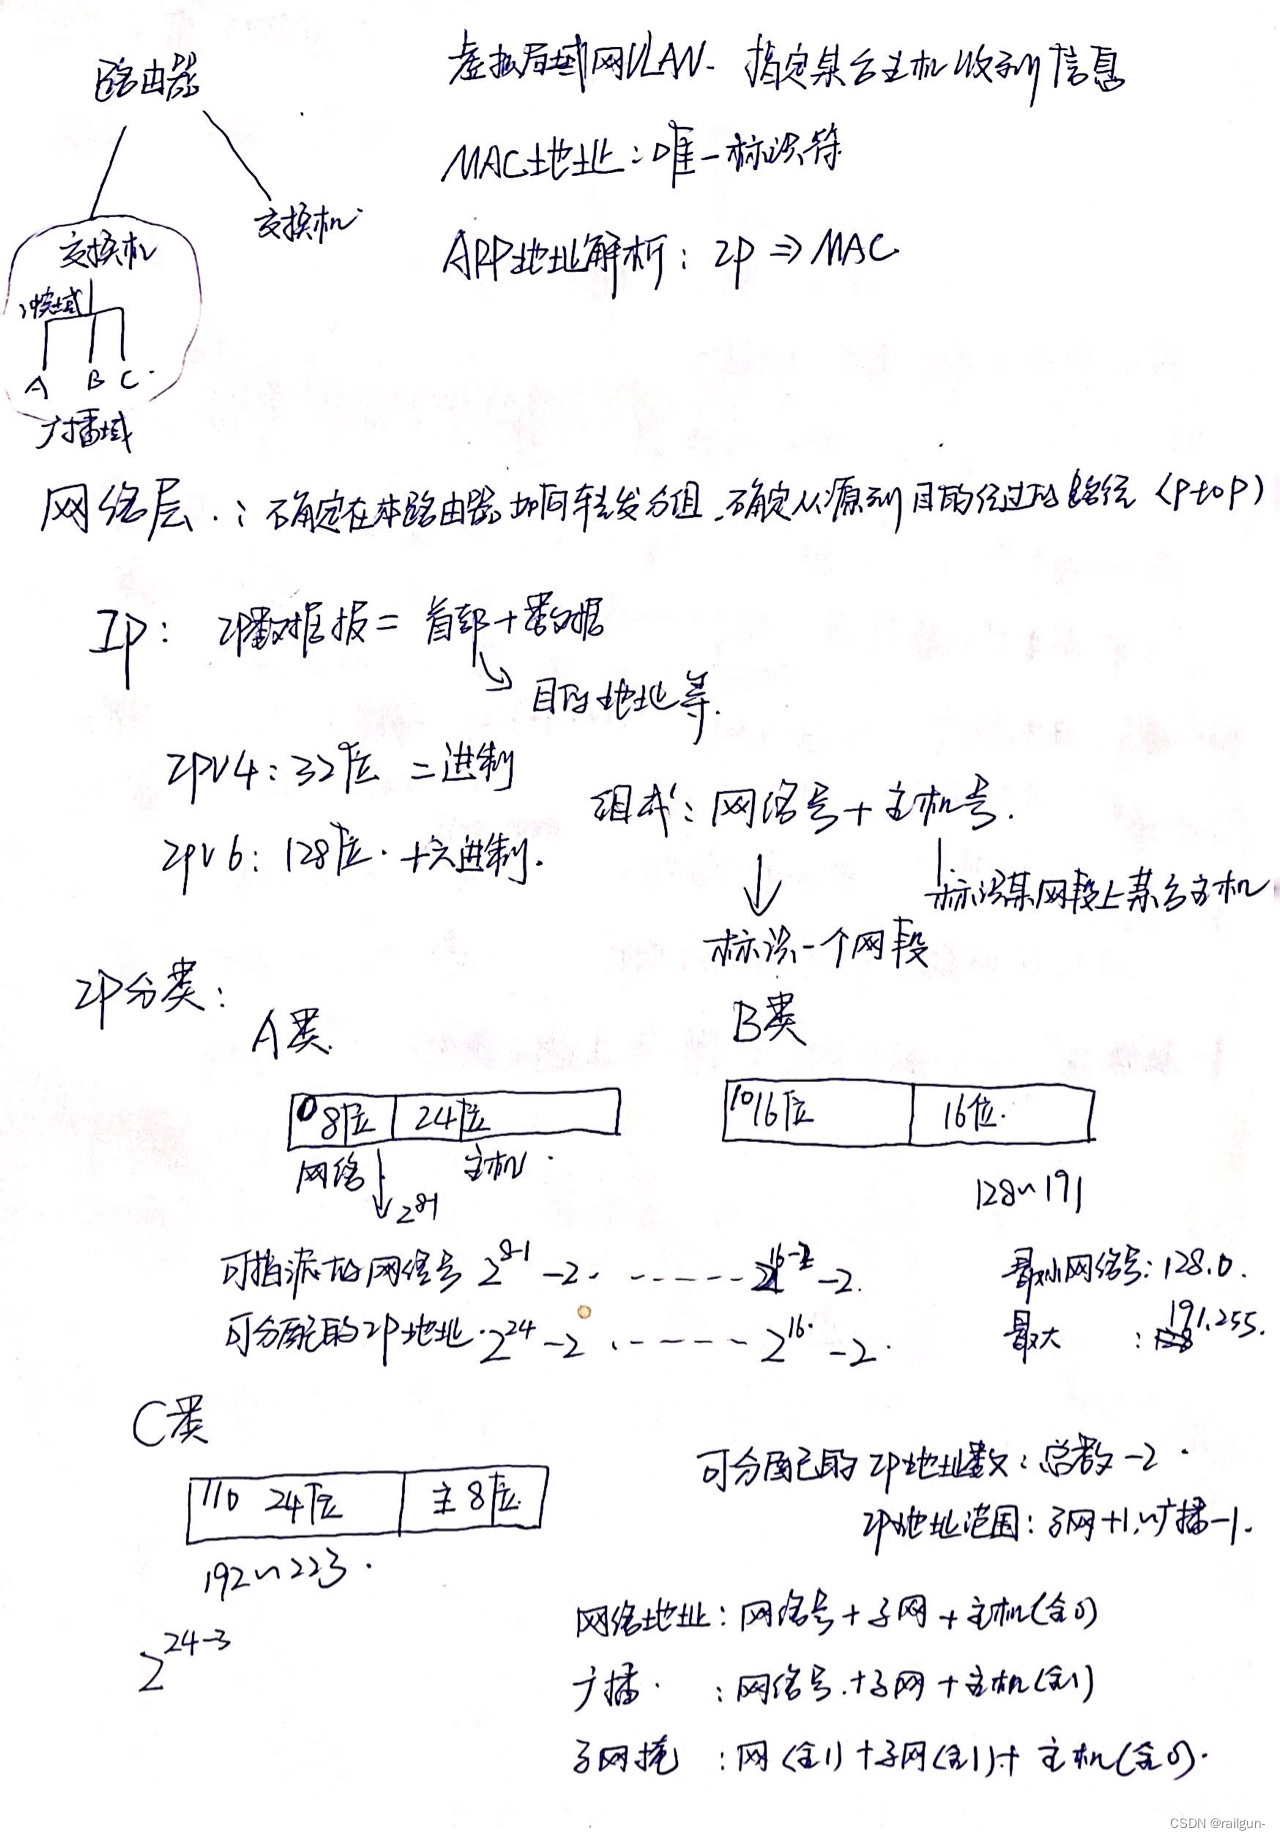 路由器
虚拟局域网VLAN. 指定某台主机收到信息
MAC地址:唯一标识符
交换机
交换机
ARP地址解析: IP ⇒ MAC
冲突域
A B C
广播域
网络层:确定在本路由器如何转发分组.确定从源到目的经过的路径 (PtoP)
IP: IP数据报= 首部+数据
目的地址等.
IPV4:32位 二进制
组成:网络号+主机号.
IPV6:128位. 十六进制.
标识某网段上某台主机
标识一个网段
IP分类:
A类. B类
0 8位 24位 10 16位 16位.
网络 主机
2^8-1
128~191
可指派的网络号 2^8-1 -2. ------ 2^16-2 -2.
最小网络号:128.0.
可分配的IP地址.2^24 -2 ------ 2^16 -2.
最大 :191.255.
C类
可分配的IP地址数:总数-2
110 24位 主8位.
IP地址范围:子网+1,~广播-1.
192~223.
网络地址:网络号+子网+主机(全0)
2^24-3
广播. :网络号.+子网+主机(全1)
子网掩 :网(全1)+子网(全1)+主机(全0).
CSDN @railgun-